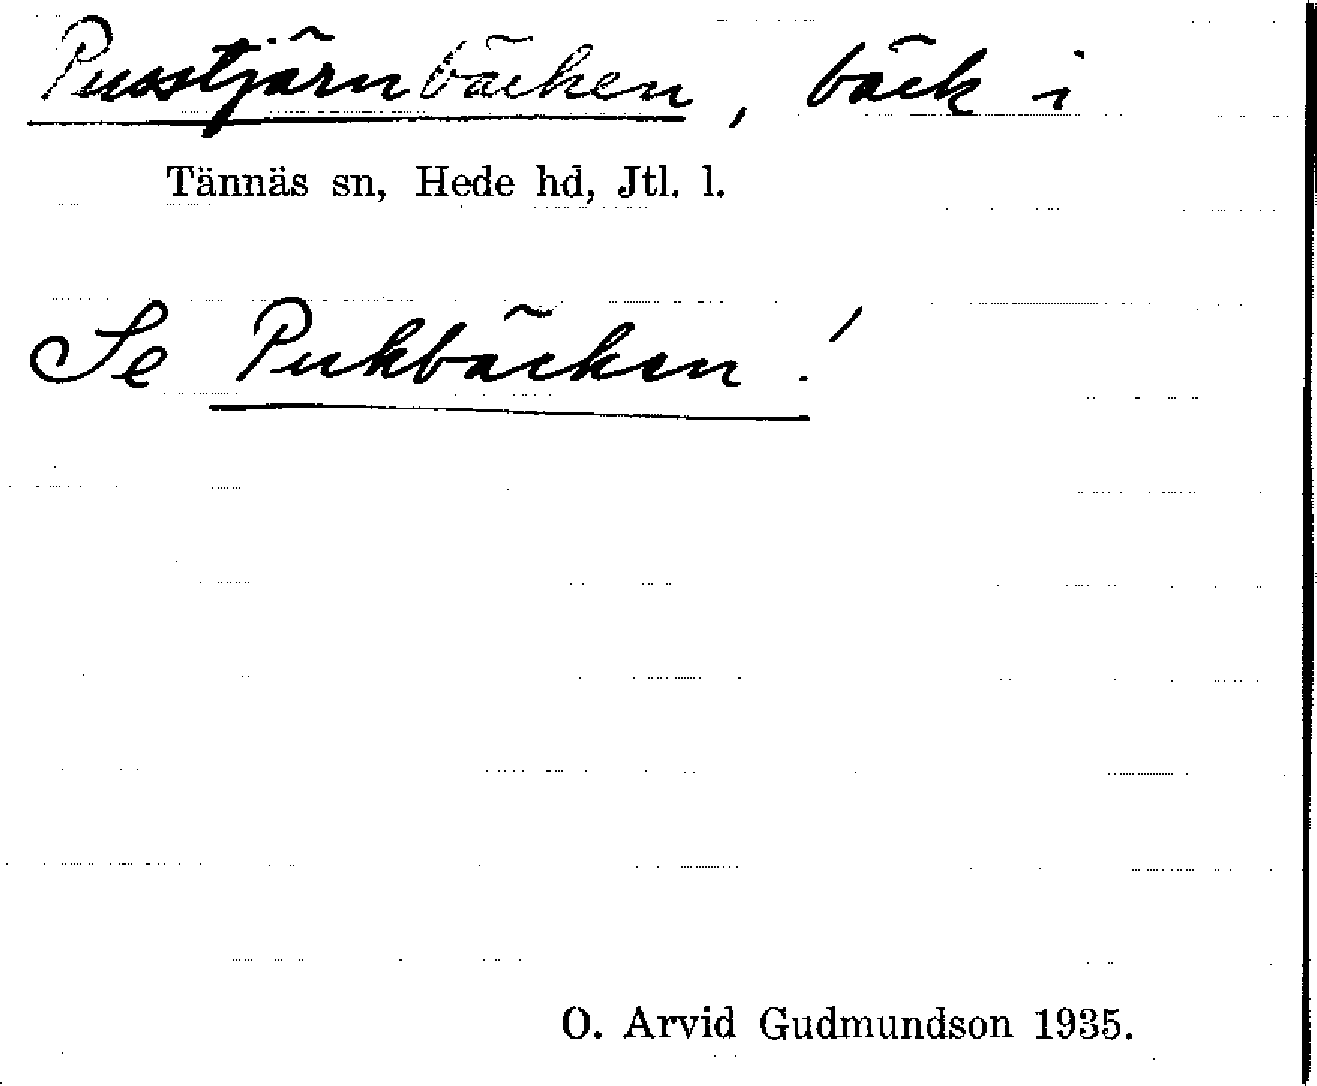 Pusstjärnbäcken, bäck i
Tännäs sn, Hede hd, Jtl. l.
Se Pukbäcken!
O. Arvid Gudmundson 1935.